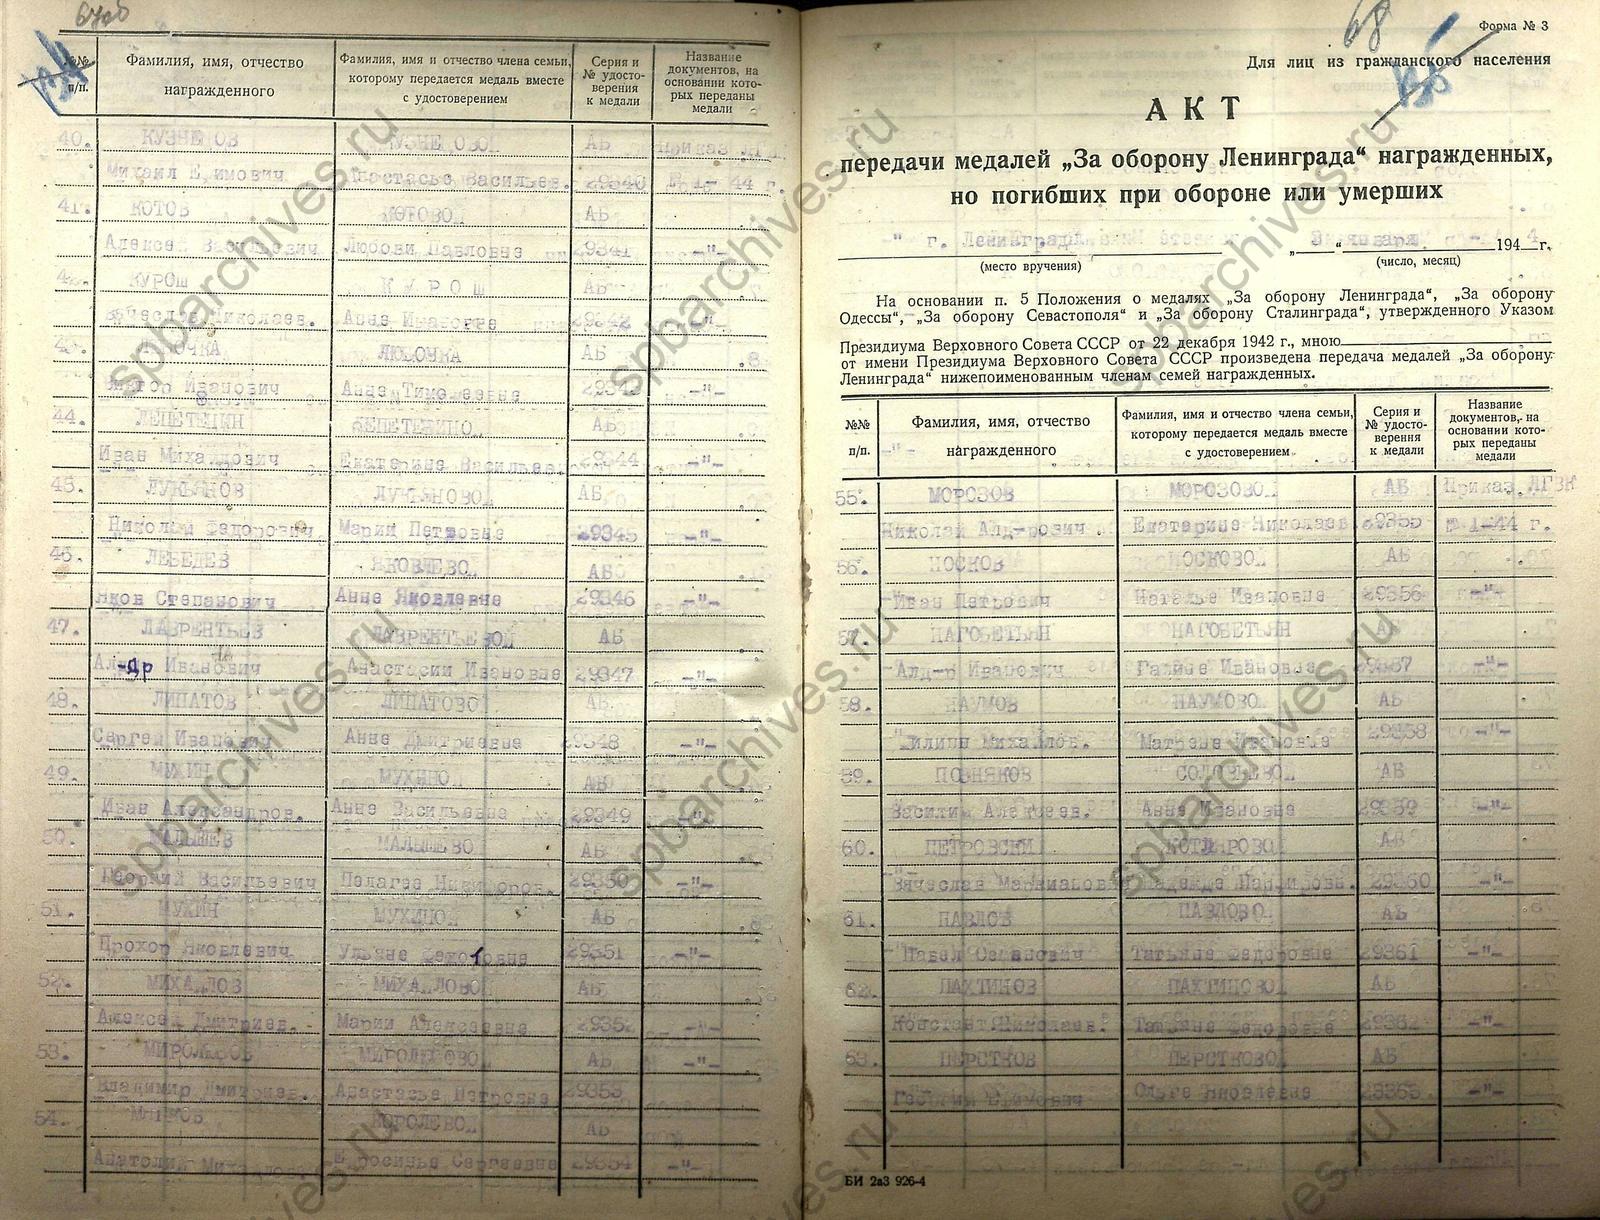 67об
№№ п/п.
Фамилия, имя, отчество награжденного
Фамилия, имя и отчество члена семьи, которому передается медаль вместе с удостоверением
Серия и № удостоверения к медали
Название документов, на основании которых переданы медали
40. КУЗНЕЦОВ КУЗНЕЦОВОЙ АБ Приказ
Михаил Анастасье Васильев. 29340 44 г.
41. КОТОВ КОТОВОЙ АБ
Алексей Васильевич Любови Павловне 29341 -"-
42. КУРОШ КУРОШ АБ
Вячеслав Николаев. Анне 29342 -"-
43. ЛЮБОЧКА АБ
Виктор Иванович Анне Тимофеевне 29343 -"-
44. ЛЕПЕТЕНИН АБ
Иван Михайлович Екатерине Васильев. 29344 -"-
45. ЛУКЬЯНОВ ЛУКЬЯНОВОЙ АБ
Николай Федорович Марии Петровне 29345 -"-
46. ЛЕБЕДЕВ ЯКОВЛЕВОЙ АБ
Яков Степанович Анне Яковлевне 29346 -"-
47. ЛАВРЕНТЬЕВ ЛАВРЕНТЬЕВОЙ АБ
Ал-др Иванович Анастасии Ивановне 29347 -"-
48. ЛИПАТОВ ЛИПАТОВОЙ АБ
Сергей Иванович Анне Дмитриевне 29348 -"-
49. МУХИН МУХИНОЙ АБ
Иван Александров. Анне Васильевне 29349 -"-
50. МАЛЫШЕВ МАЛЫШЕВОЙ АБ
Георгий Васильевич Пелагее Никифоров. 29350 -"-
51. МУХИН МУХИНОЙ АБ
Прохор Яковлевич Ульяне 29351 -"-
52. МИХАЙЛОВ МИХАЙЛОВОЙ АБ
Алексей Дмитриев. Марии Алексеевне 29352 -"-
53. АБ -"-
Владимир Дмитриев. Анастасье Петровне 29353
54. КОРОЛЕВОЙ АБ
Анатолий Ефросинье Сергеевне 29354 -"-
68
Форма № 3
Для лиц из гражданского населения
АКТ
передачи медалей „За оборону Ленинграда“ награжденных,
но погибших при обороне или умерших
г. Ленинград „ “ января 1944 г.
(место вручения) (число, месяц)
На основании п. 5 Положения о медалях „За оборону Ленинграда“, „За оборону
Одессы“, „За оборону Севастополя“ и „За оборону Сталинграда“, утвержденного Указом
Президиума Верховного Совета СССР от 22 декабря 1942 г., мною
от имени Президиума Верховного Совета СССР произведена передача медалей „За оборону
Ленинграда“ нижепоименованным членам семей награжденных.
№№ п/п.
Фамилия, имя, отчество награжденного
Фамилия, имя и отчество члена семьи, которому передается медаль вместе с удостоверением
Серия и № удостоверения к медали
Название документов, на основании которых переданы медали
55. МОРОЗОВ МОРОЗОВОЙ АБ Приказ
Николай Екатерине Николаев 29355 1-44 г.
56. НОСКОВ НОСКОВОЙ АБ
Иван Петрович Наталье Ивановне 29356 -"-
57. НАГОВЕТЬЯН НАГОВЕТЬЯН
Иванович Галине Ивановне 29357 -"-
58. НАУМОВ НАУМОВОЙ АБ
Матрене Ивановне 29358 -"-
59. ПОЗНЯКОВ СОЛОВЬЕВОЙ АБ
Василий Алексеев. Анне Ивановне 29359 -"-
60. АБ
Вячеслав Надежде 29360 -"-
61. ПАВЛОВ ПАВЛОВОЙ АБ
Павел Семенович Татьяне Федоровне 29361 -"-
62. ПАХТИНОВ ПАХТИНОВОЙ АБ
Николаев. Татьяне Федоровне 29362 -"-
63. ПЕРСТКОВ ПЕРСТКОВОЙ АБ
Ольге Яковлевне 29363 -"-
БИ 2аЗ 926-4
spbarchives.ru
spbarchives.ru
spbarchives.ru
spbarchives.ru
spbarchives.ru
spbarchives.ru